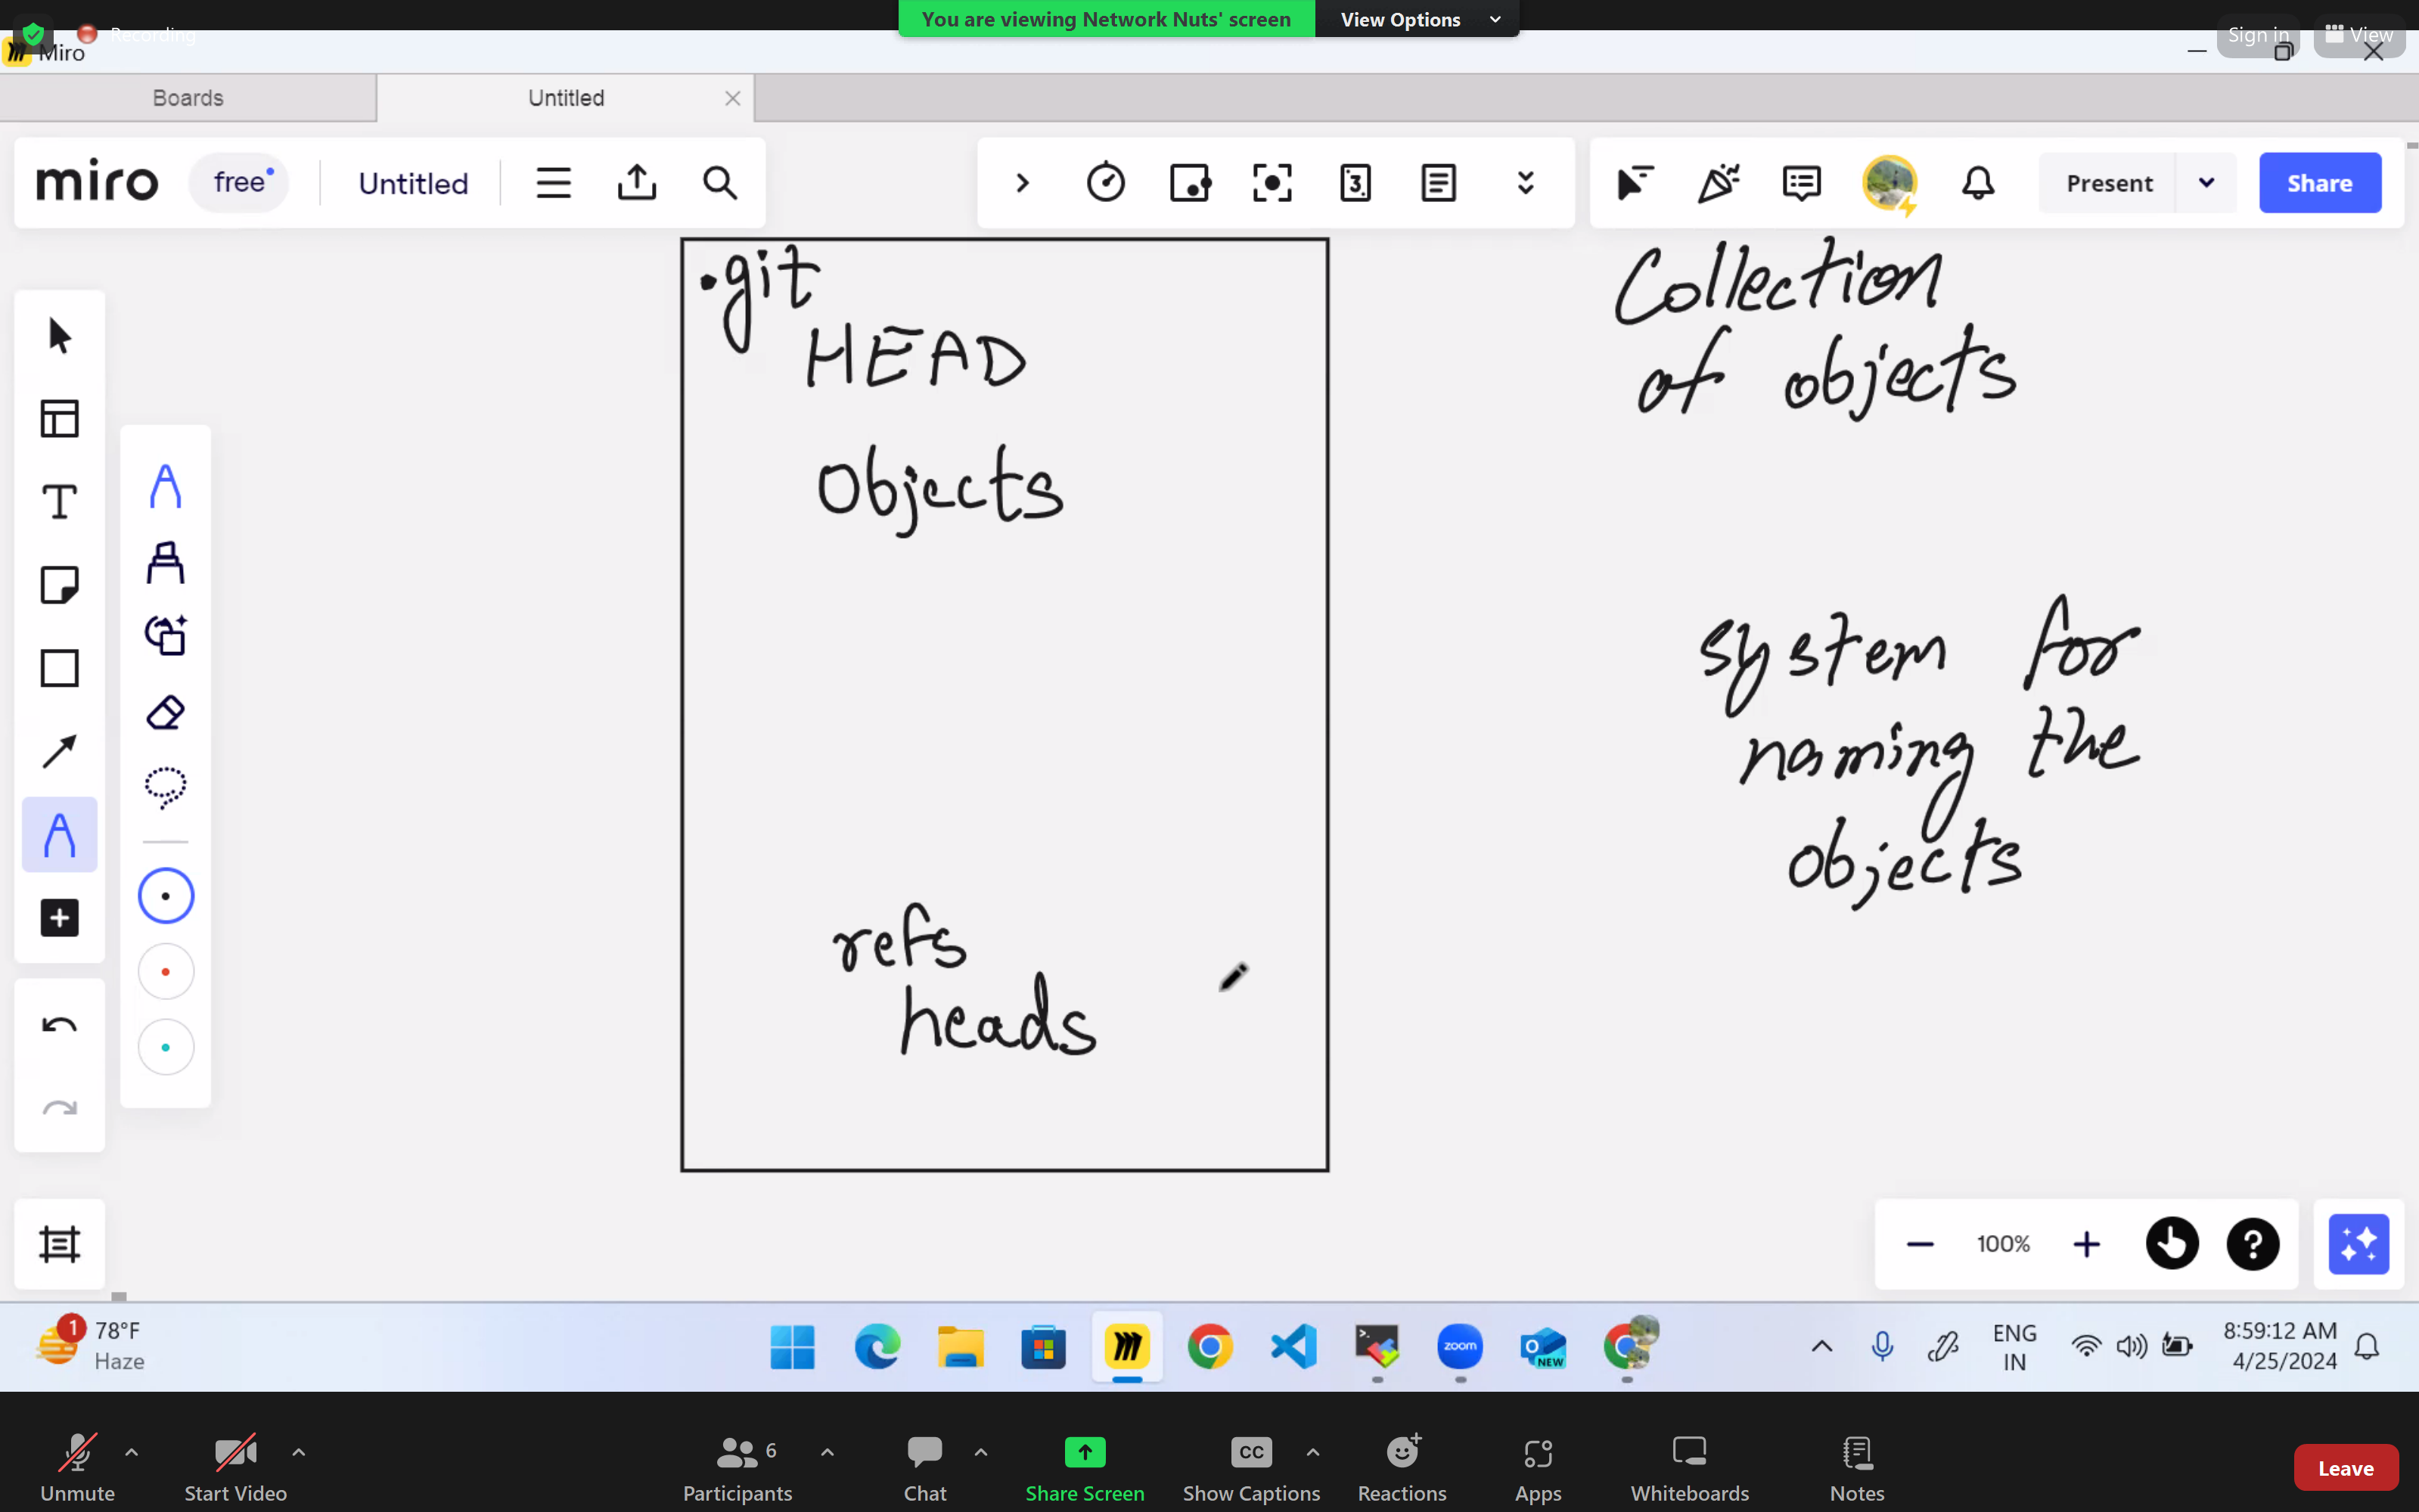 You are viewing Network Nuts' screen
View Options
Recording
Sign in
View
Miro
Boards
Untitled
miro
free
Untitled
3
Present
Share
.git
HEAD
Objects
refs
heads
Collection
of objects
system for
naming the
objects
100%
1
78°F
Haze
zoom
NEW
ENG
IN
8:59:12 AM
4/25/2024
Unmute
Start Video
6
Participants
Chat
Share Screen
CC
Show Captions
Reactions
Apps
Whiteboards
Notes
Leave